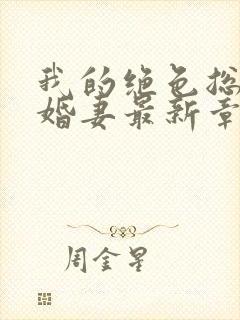 我的绝色总
婚妻最新章
周金星